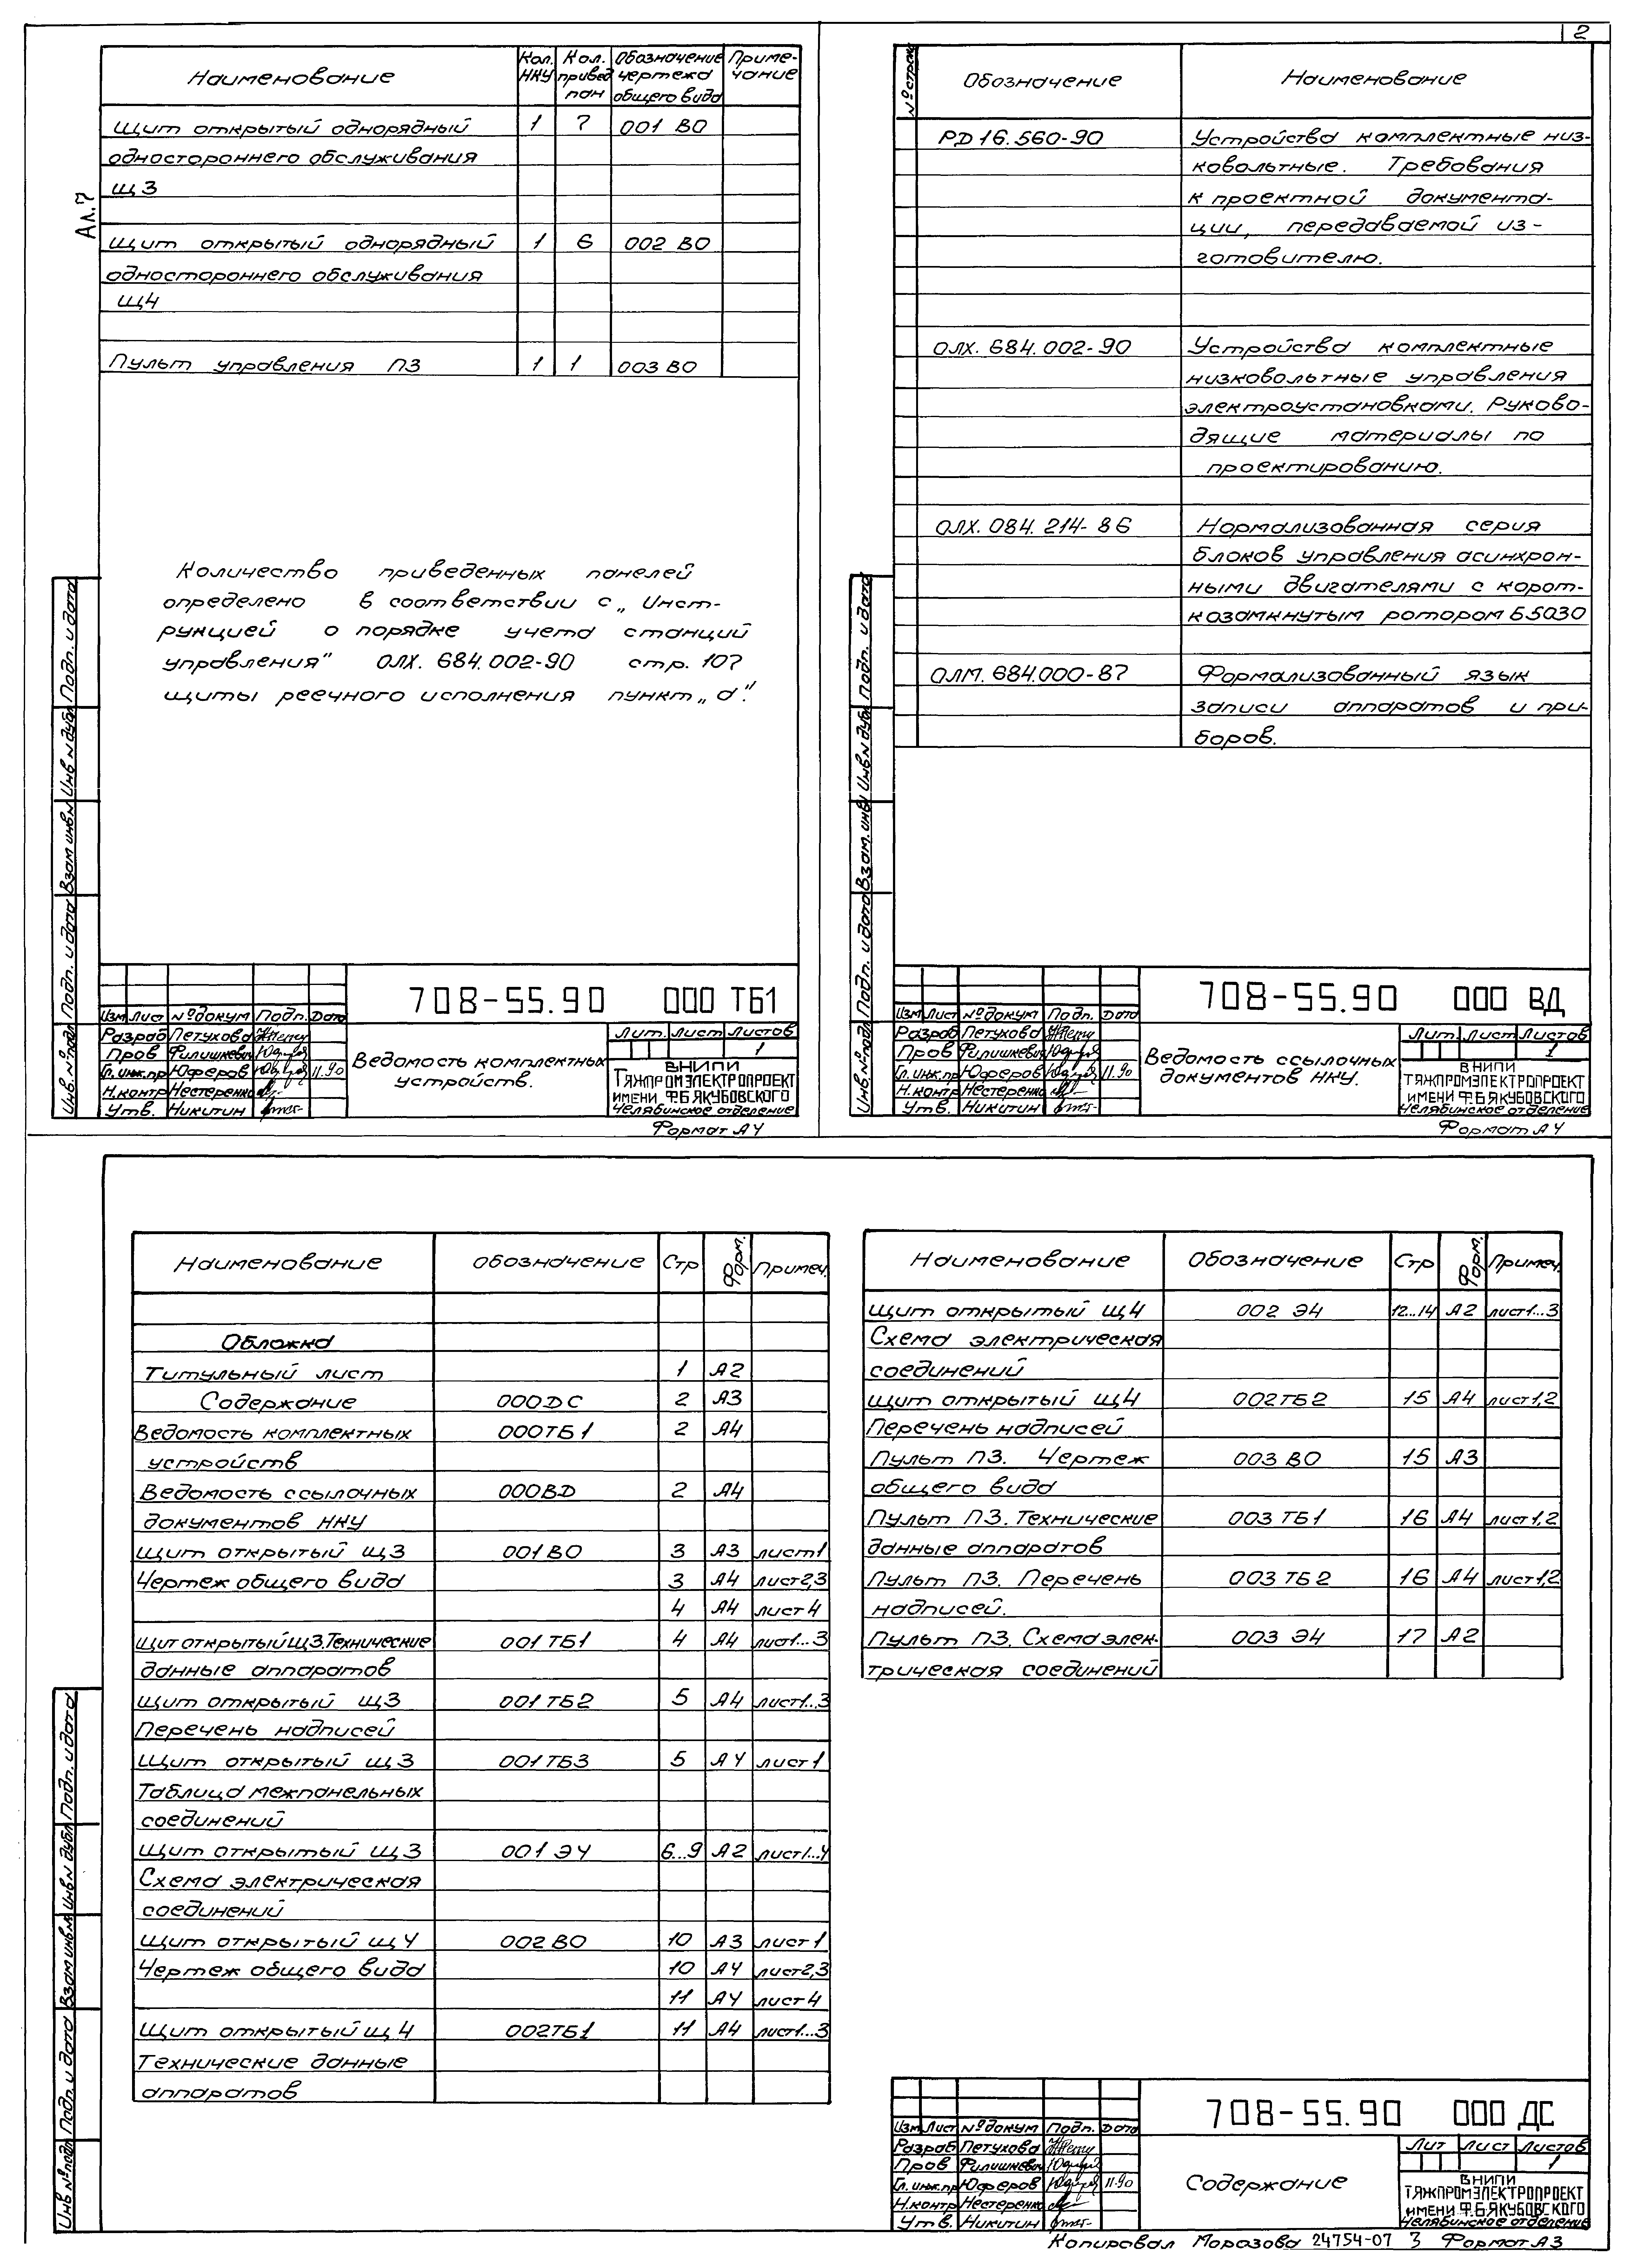 2
Ал.7
Наименование Кол. НКУ Кол. привед пан Обозначение чертежа общего вида Приме-чание
Щит открытый однорядный 1 7 001 ВО
одностороннего обслуживания
Щ3
Щит открытый однорядный 1 6 002 ВО
одностороннего обслуживания
Щ4
Пульт управления П3 1 1 003 ВО
Количество приведенных панелей
определено в соответствии с „Инст-
рукцией о порядке учета станций
управления" ОЛХ. 684.002-90 стр. 107
щиты реечного исполнения пункт „а".
Инв.№подл Подп. и дата Взам инв.№ Инв № дубл Подп. и дата
708-55.90 000 ТБ1
Изм Лист №докум Подп. Дата
Разраб Петухова
Пров Филишкевич
Гл. инж.пр Юферов 11.90
Н.контр Нестеренко
Утв. Никитин
Ведомость комплектных
устройств.
Лит. Лист Листов
1
ВНИПИ
ТЯЖПРОМЭЛЕКТРОПРОЕКТ
ИМЕНИ Ф.Б.ЯКУБОВСКОГО
Челябинское отделение
Формат А4
№ строки Обозначение Наименование
РД 16.560-90 Устройства комплектные низ-
ковольтные. Требования
к проектной документа-
ции, передаваемой из-
готовителю.
ОЛХ. 684.002-90 Устройства комплектные
низковольтные управления
электроустановками. Руково-
дящие материалы по
проектированию.
ОЛХ. 084. 214-86 Нормализованная серия
блоков управления асинхрон-
ными двигателями с корот-
козамкнутым ротором Б5030
ОЛМ. 684.000-87 Формализованный язык
записи аппаратов и при-
боров.
Инв.№подл Подп. и дата Взам. инв№ Инв.№ дубл Подп. и дата
708-55.90 000 ВД
Изм Лист №докум Подп. Дата
Разраб Петухова
Пров Филишкевич
Гл. инж.пр Юферов 11.90
Н.контр Нестеренко
Утв. Никитин
Ведомость ссылочных
документов НКУ.
Лит. Лист Листов
1
ВНИПИ
ТЯЖПРОМЭЛЕКТРОПРОЕКТ
ИМЕНИ Ф.Б.ЯКУБОВСКОГО
Челябинское отделение
Формат А4
Наименование Обозначение Стр Форм. Примеч.
Обложка
Титульный лист 1 А2
Содержание 000DC 2 А3
Ведомость комплектных 000ТБ1 2 А4
устройств
Ведомость ссылочных 000ВD 2 А4
документов НКУ
Щит открытый Щ3 001ВО 3 А3 лист1
Чертеж общего вида 3 А4 лист2,3
4 А4 лист 4
Щит открытый Щ3. Технические 001 ТБ1 4 А4 лист1...3
данные аппаратов
Щит открытый Щ3 001 ТБ2 5 А4 лист1...3
Перечень надписей
Щит открытый Щ3 001ТБ3 5 А4 лист1
Таблица межпанельных
соединений
Щит открытый Щ3 001 Э4 6...9 А2 лист1...4
Схема электрическая
соединений
Щит открытый Щ4 002ВО 10 А3 лист1
Чертеж общего вида 10 А4 лист2,3
11 А4 лист 4
Щит открытый Щ4 002ТБ1 11 А4 лист1...3
Технические данные
аппаратов
Наименование Обозначение Стр Форм. Примеч.
Щит открытый Щ4 002 Э4 12...14 А2 лист1...3
Схема электрическая
соединений
Щит открытый Щ4 002ТБ2 15 А4 лист1,2
Перечень надписей
Пульт П3. Чертеж 003 ВО 15 А3
общего вида
Пульт П3. Технические 003 ТБ1 16 А4 лист1,2
данные аппаратов
Пульт П3. Перечень 003 ТБ2 16 А4 лист1,2
надписей.
Пульт П3. Схема элек- 003 Э4 17 А2
трическая соединений
Инв №подл Подп. и дата Взам инв.№ Инв № дубл Подп. и дата
708-55.90 000 ДС
Изм Лист №докум Подп. Дата
Разраб Петухова
Пров Филишкевич
Гл. инж.пр Юферов 11.90
Н.контр Нестеренко
Утв. Никитин
Содержание
Лит Лист Листов
1
ВНИПИ
ТЯЖПРОМЭЛЕКТРОПРОЕКТ
ИМЕНИ Ф.Б.ЯКУБОВСКОГО
Челябинское отделение
Копировал Морозова 24754-07 3 Формат А3